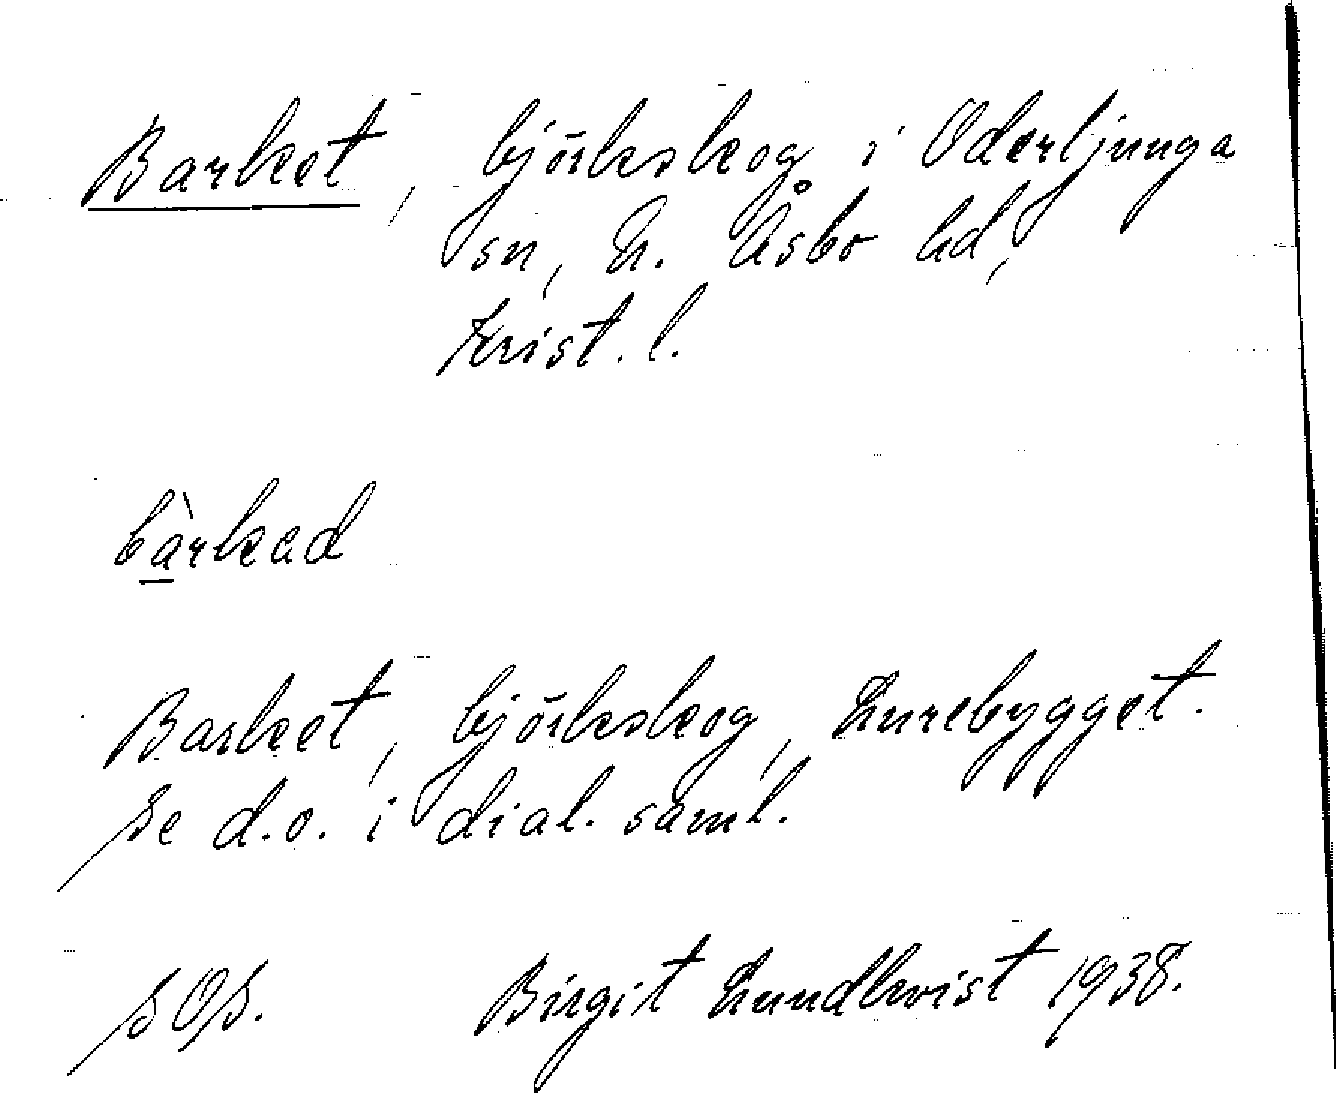 Barket, björkskog i Oderljunga
sn, N. Åsbo hd,
Krist. l.
bàrkad
Barket, björkskog, Lurebygget.
Se d.o. i dial. saml.
SOS. Birgit Lundkvist 1938.